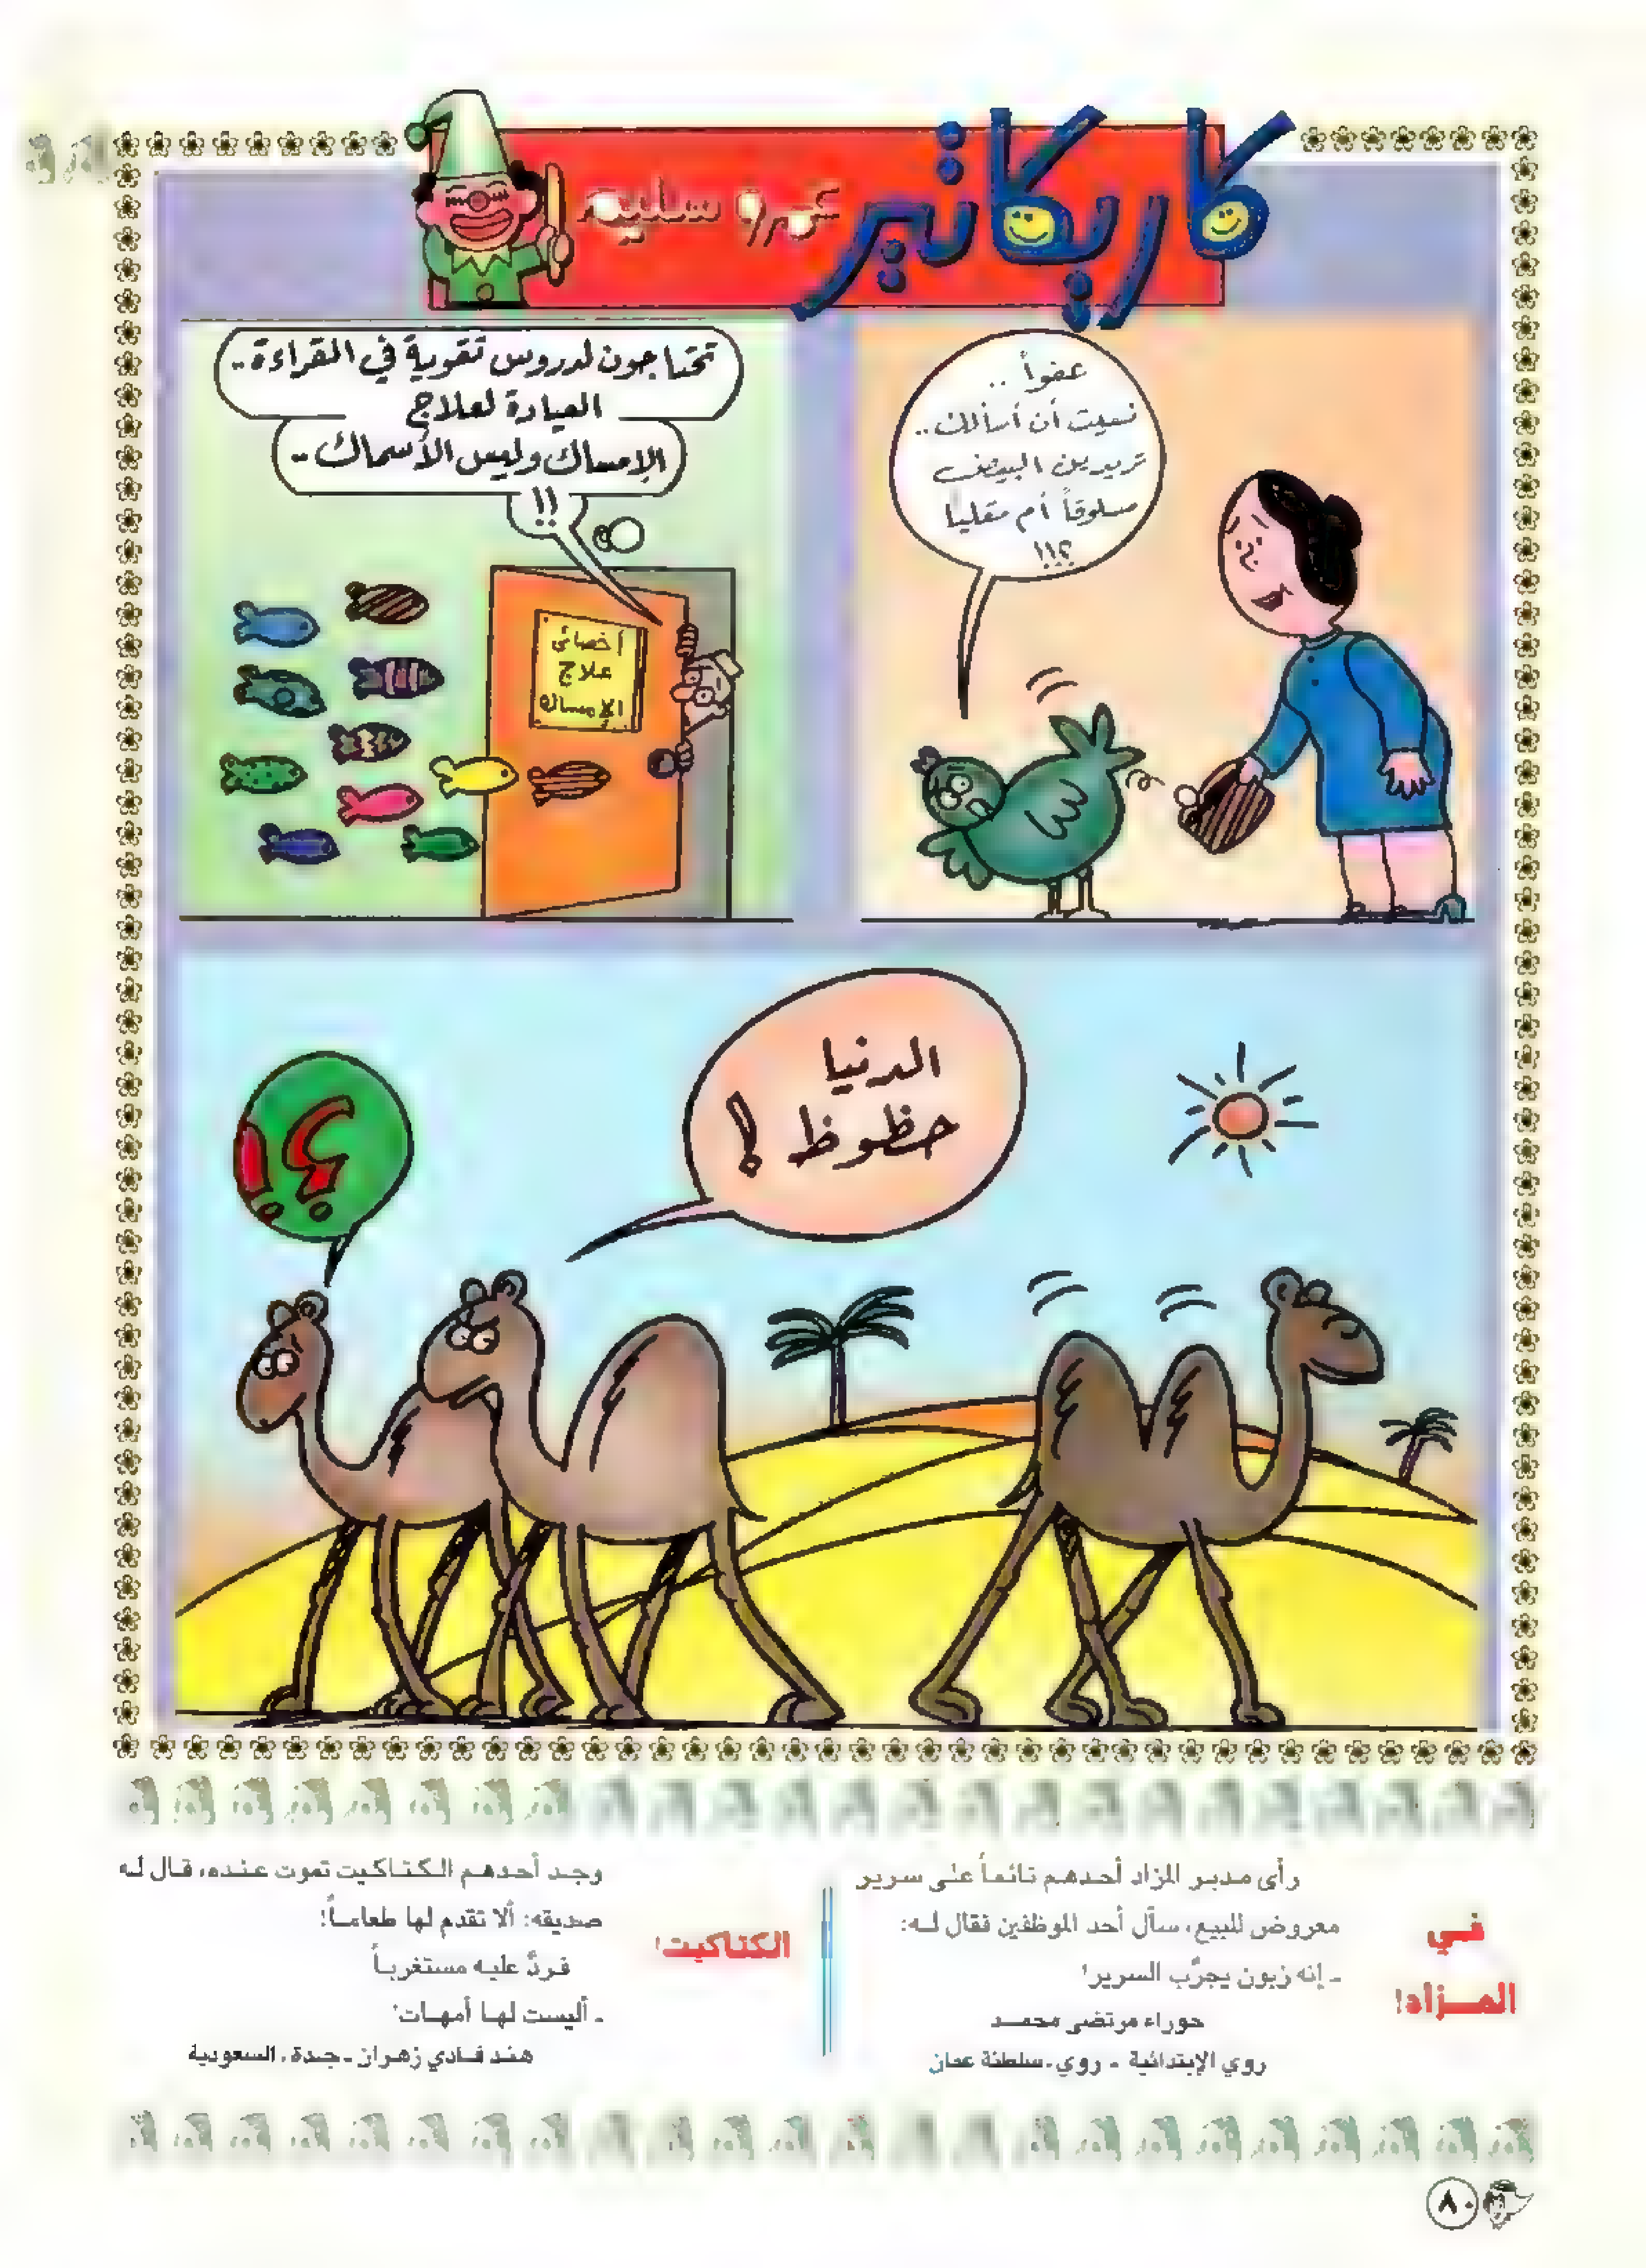 كاريكاتير
عمرو سليم
عفواً ..
نسيت أن أسألك ..
تريدين البيض
مسلوقاً أم مقليا
؟!!
تحتاجون لدروس تقوية في القراءة ..
العيادة لعلاج
الإمساك وليس الأسماك ..
!!
أخصائى
علاج
الإمساك
الدنيا
حظوظ !
؟!
في
المـزاد!
رأى مدير المزاد أحدهم نائماً على سرير
معروض للبيع، سأل أحد الموظفين فقال له:
ـ إنه زبون يجرّب السرير!
حوراء مرتضى محمد
روي الإبتدائية ـ روي ـ سلطنة عمان
الكتاكيت!
وجد أحدهم الكتاكيت تموت عنده، قال له
صديقه: ألا تقدم لها طعاماً!
فردّ عليه مستغرباً
ـ أليست لها أمهات!
هند فادي زهران ـ جدة ـ السعودية
٨٠